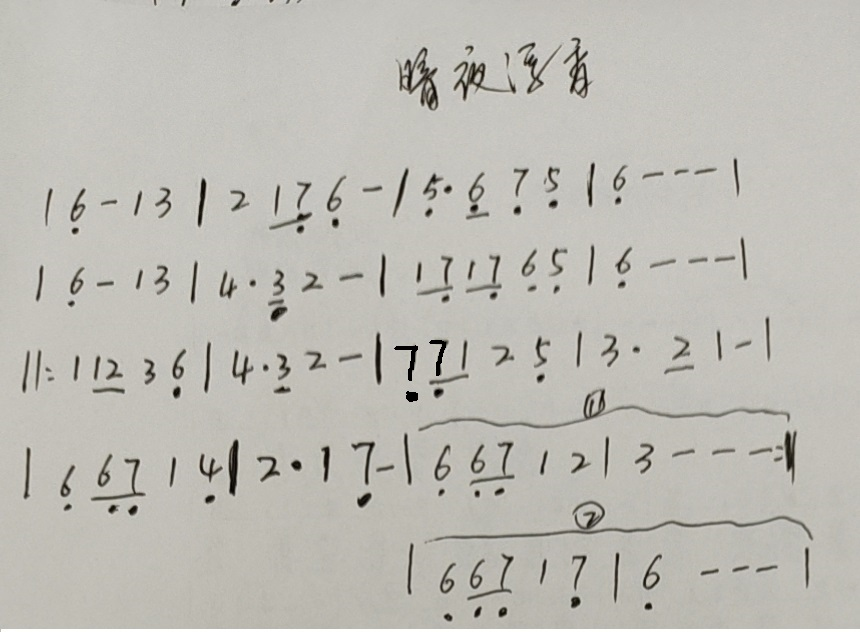 暗夜浮香
| 6̣ - 1 3 | 2 1̲7̣̲ 6̣ - | 5̣· 6̣̲ 7̣ 5̣ | 6̣ - - - |
| 6̣ - 1 3 | 4· 3̣̲ 2 - | 1̲7̣̲ 1̲7̣̲ 6̣ 5̣ | 6̣ - - - |
||: 1 1̲2̲ 3 6̣ | 4· 3̣̲ 2 - | 7̣ 7̣̲1̲ 2 5̣ | 3· 2̲ 1 - |
| 6̣ 6̣̲7̣̲ 1 4̣ | 2· 1 7̣ - | 6̣ 6̣̲7̣̲ 1 2 | 3 - - - :||
①
②
| 6̣ 6̣̲7̣̲ 1 7̣ | 6̣ - - - |